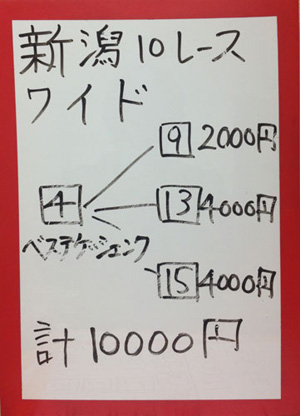 新潟10レース
ワイド
9 2000円
4
13 4000円
ベステゲシェンク
15 4000円
計10000円